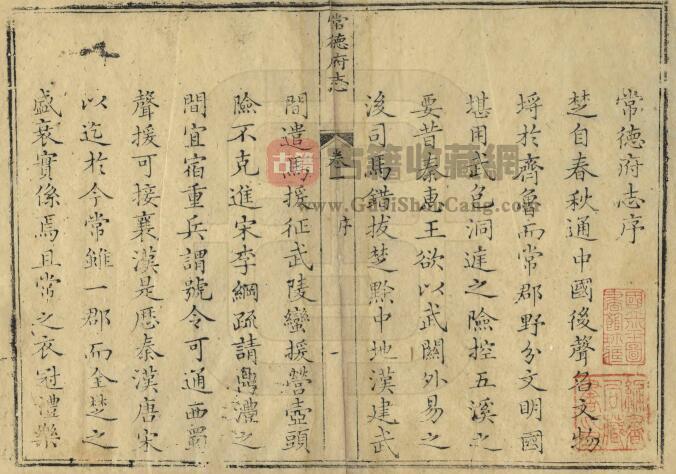 常德府志序
楚自春秋通中國後聲名文物
埒於齊魯而常郡野分文明國
堪用武邑洞庭之險控五溪之
要昔秦惠王欲以武關外易之
後司馬錯拔楚黔中地漢建武
常德府志
卷一 序
一
間遣馬援征武陵蠻援營壺頭
險不克進宋李綱疏請鼎澧之
間宜宿重兵謂號令可通西蜀
聲援可接襄漢是歷秦漢唐宋
以迄於今常雖一郡而全楚之
盛衰實係焉且常之衣冠禮樂
古籍收藏網
www.GuJiShouCang.com